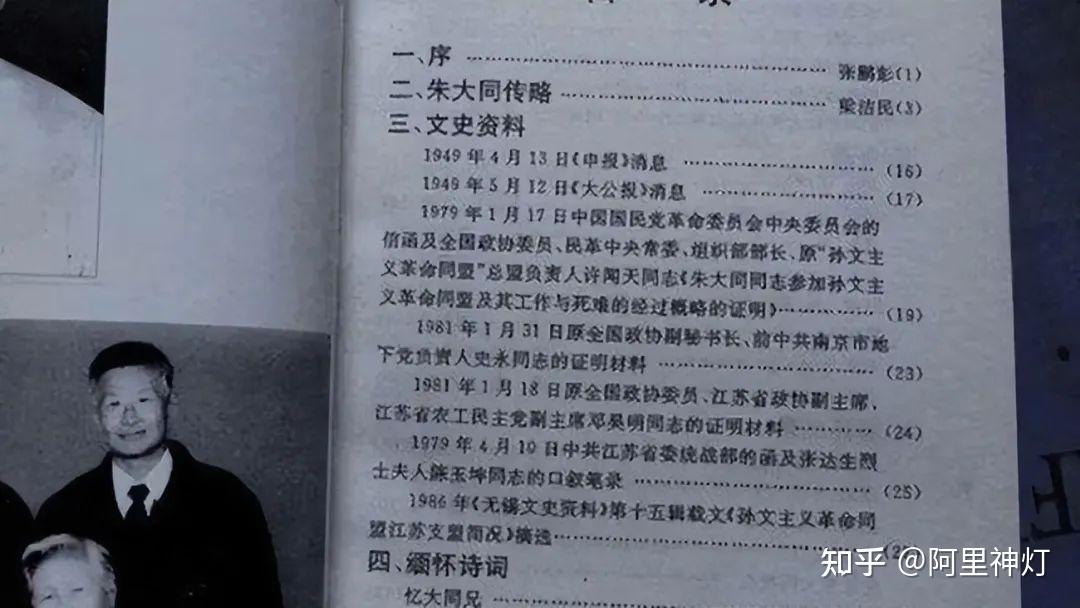 一、序 ………………………… 张鹏彭(1)
二、朱大同传略 ………………………… 梁洁民(3)
三、文史资料
1949年4月13日《申报》消息 ………………… (16)
1949年5月12日《大公报》消息 ………………… (17)
1979年1月17日中国国民党革命委员会中央委员会的
信函及全国政协委员、民革中央常委、组织部部长、原“孙文主
义革命同盟”总盟负责人许闻天同志《朱大同同志参加孙文主
义革命同盟及其工作与死难的经过概略的证明》………… (19)
1981年1月31日原全国政协副秘书长、前中共南京市地
下党负责人史永同志的证明材料 ………………… (23)
1981年1月18日原全国政协委员、江苏省政协副主席、
江苏省农工民主党副主席邓昊明同志的证明材料 ………… (24)
1979年4月10日中共江苏省委统战部的函及张达生烈
士夫人陈玉坤同志的口叙笔录 ………………… (25)
1986年《无锡文史资料》第十五辑载文《孙文主义革命同
盟江苏支盟简况》摘选 …………………
四、缅怀诗词
忆大同兄 …………………
知乎 @阿里神灯